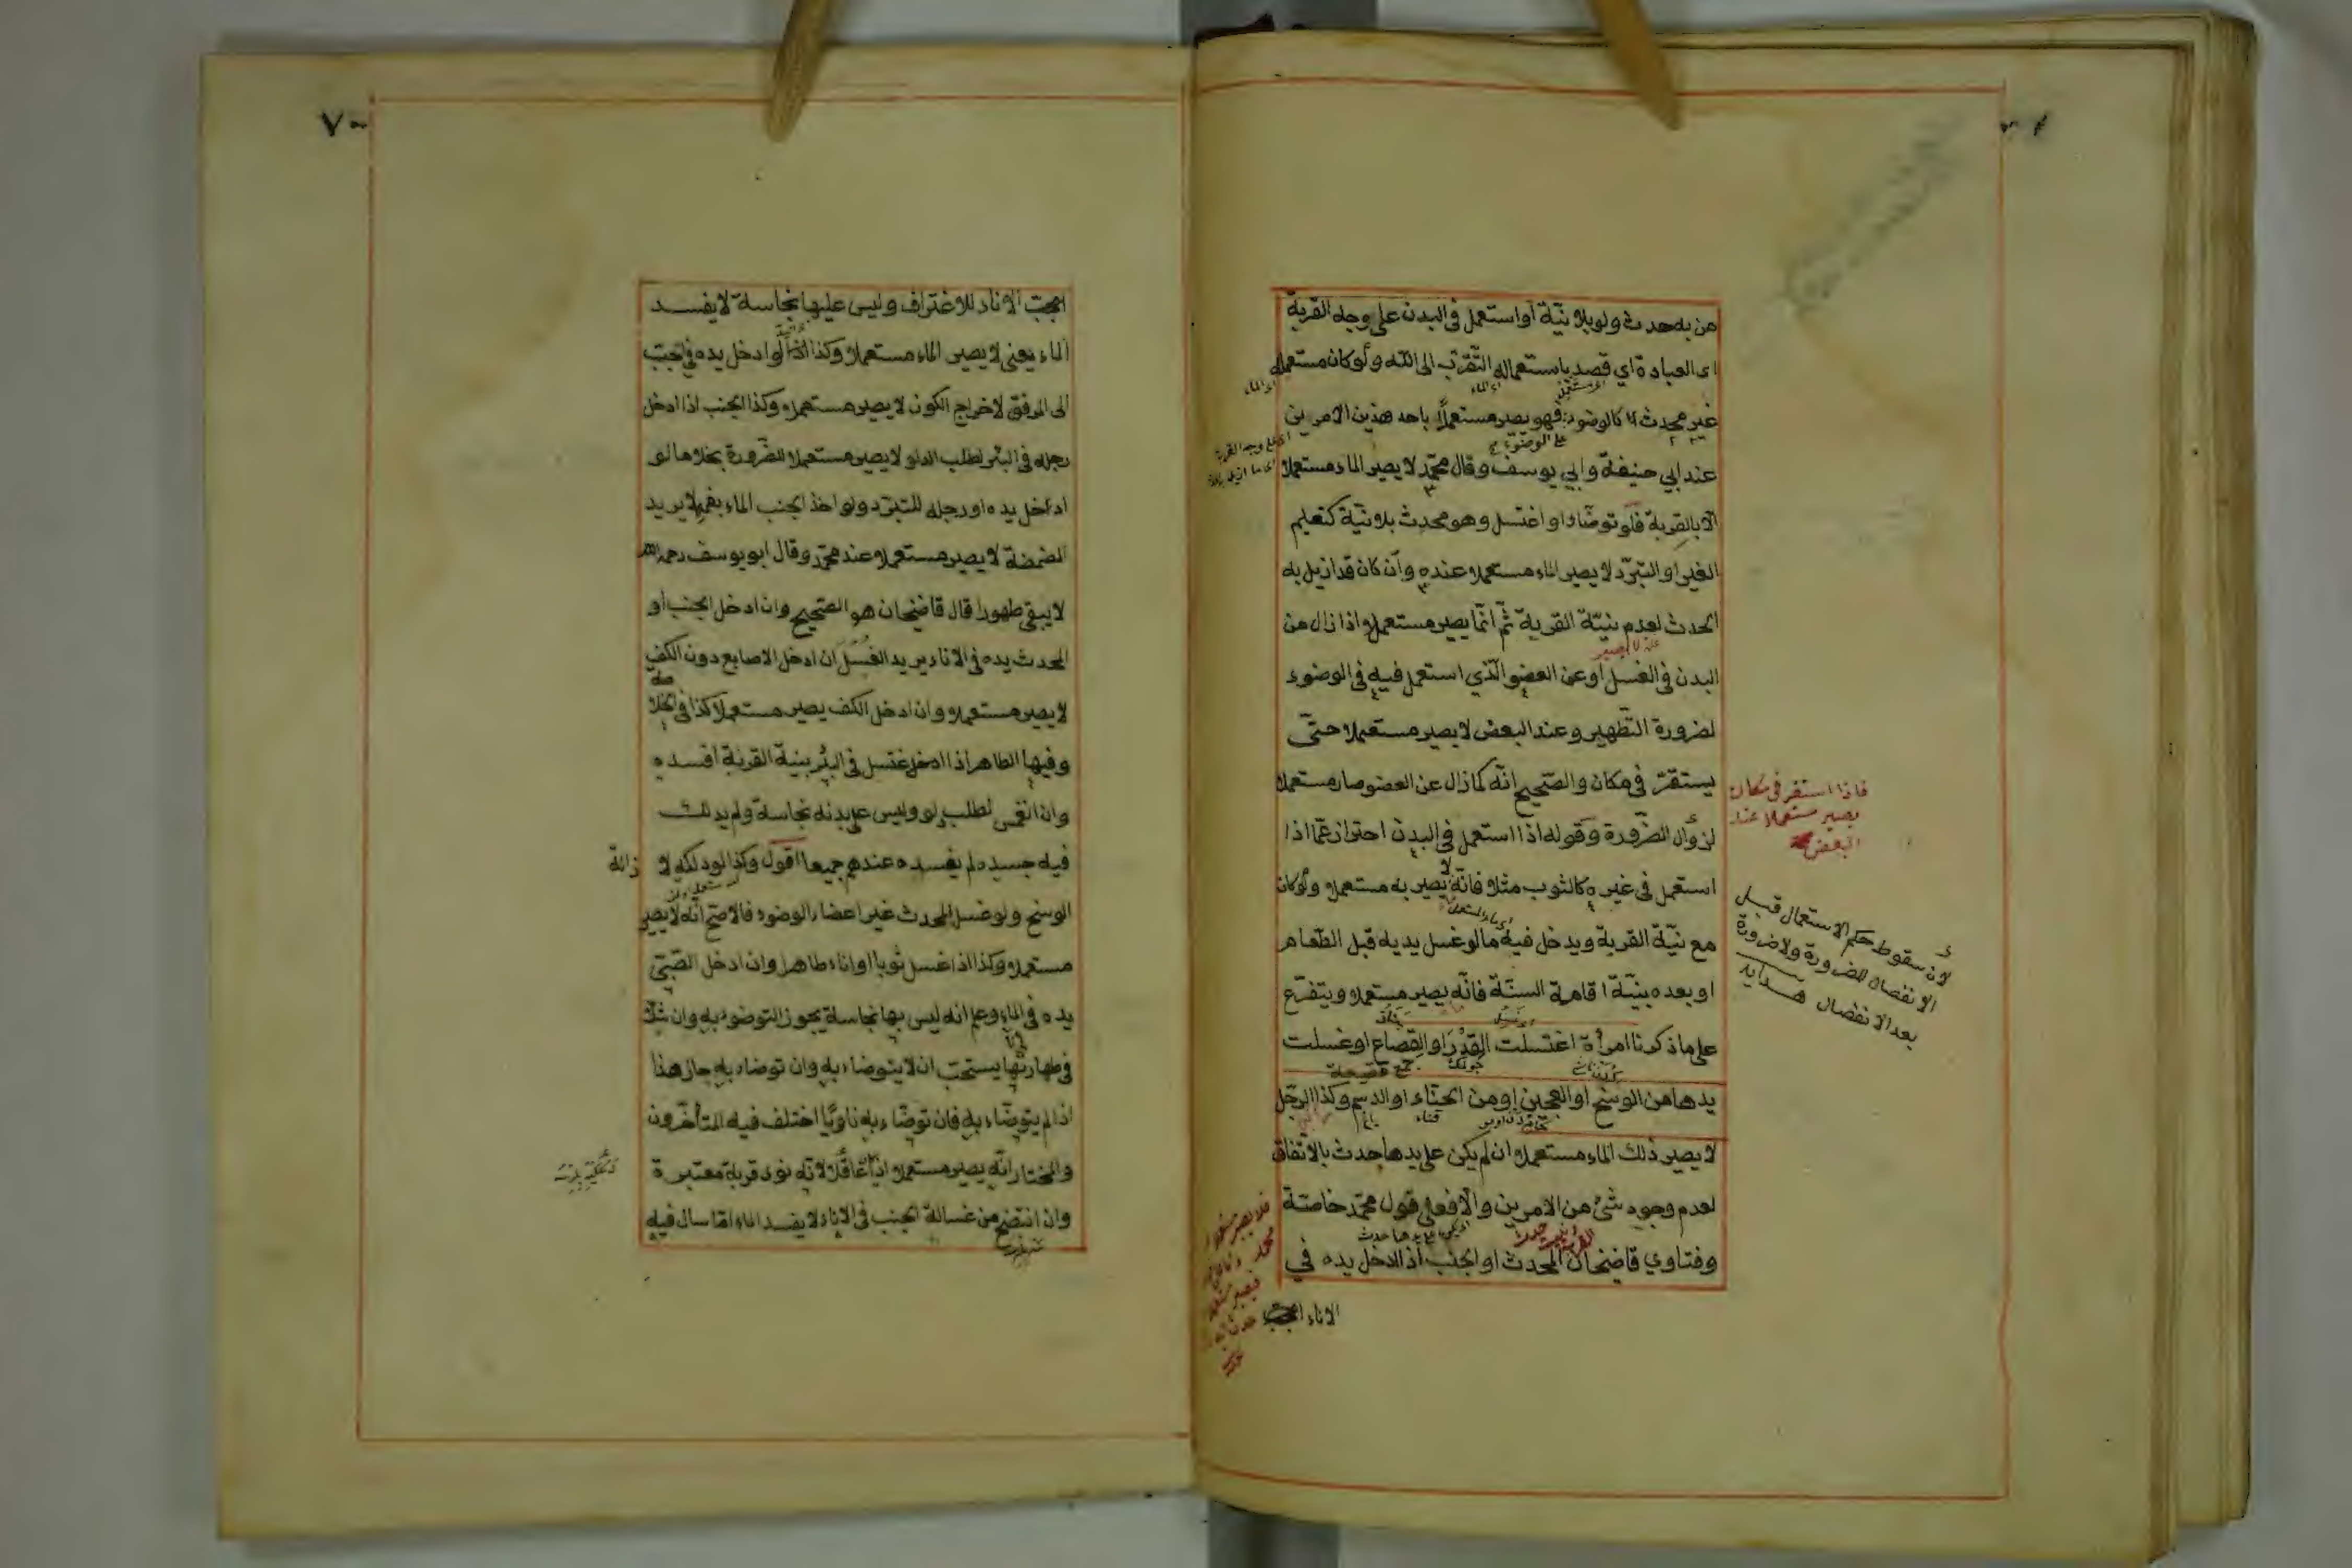 من به حدث ولو بلا نيّة او استعمل في البدن على وجه القربة
اى العبادة اي قصد باستعماله التقرّب الى الله ولو كان مستعمله
غير محدث كالوضوء فهو يصير مستعملاً باحد هذين الامرين
على الوضوء
عند ابي حنيفة وابي يوسف وقال محمّد لا يصير الماء مستعملا
الا بالقربة فلو توضّاء او اغتسل وهو محدث بلا نيّة كتعليم
الغير او التبرّد لا يصير الماء مستعملا عنده وان كان قد ازيل به
الحدث لعدم نيّة القربة ثمّ انّما يصير مستعملا اذا زال من
البدن في الغسل او عن العضو الّذي استعمل فيه في الوضوء
لضرورة التّطهير وعند البعض لا يصير مستعملا حتّى
يستقرّ في مكان والصّحيح انّه كما زال عن العضو صار مستعملا
لزوال الضّرورة وقوله اذا استعمل في البدن احتراز عمّا اذا
استعمل في غيره كالثوب مثلا فانّه لا يصير به مستعملا ولو كان
مع نيّة القربة ويدخل فيه ما لو غسل يديه قبل الطّعام
او بعده بنيّة اقامة السنّة فانّه يصير مستعملا ويتفرّع
على ما ذكرنا امرأة اغتسلت القدر او القصاع او غسلت
جمع قصعة
يدها من الوسخ او العجين او من الحنّاء او الدسم وكذا الرّجل
لا يصير ذلك الماء مستعملا ان لم يكن على يدها حدث بالاتّفاق
لعدم وجود شئ من الامرين والّا فعلى قول محمّد خاصّة
وفتاوي قاضيخان المحدث او الجنب اذا ادخل يده في
الاناء
فاذا استقر في مكان
يصير مستعملا عند
البعض
لان سقوط حكم الاستعمال قبل
الانفصال للضرورة ولا ضرورة
بعد الانفصال هدايه
٧٠
الاناء للاغتراف وليس عليها نجاسة لا يفسد
الماء يعنى لا يصير الماء مستعملا وكذا اذا ادخل يده في الجبّ
الى المرفق لاخراج الكوز لا يصير مستعملا وكذا الجنب اذا ادخل
رجله في البئر لطلب الدلو لا يصير مستعملا للضّرورة بخلاف ما لو
ادخل يده او رجله للتبرّد ولو اخذ الجنب الماء بفمه لا يريد
المضمضة لا يصير مستعملا عند محمّد وقال ابو يوسف رحمه الله
لا يبقى طهورا قال قاضيخان هو الصّحيح وان ادخل الجنب او
المحدث يده في الاناء يريد الغسل ان ادخل الاصابع دون الكف
لا يصير مستعملا وان ادخل الكف يصير مستعملا كذا في الخلا
صه
وفيها الطاهر اذا اغتسل في البئر بنية القربة افسده
وان انغمس لطلب دلو وليس على بدنه نجاسة ولم يدلك
فيه جسده لم يفسده عندهم جميعا اقول وكذا لو دلكه لا زالة
الوسخ ولو غسل المحدث غير اعضاء الوضوء فالاصحّ انّه لا يصير
مستعملا وكذا اذا غسل ثوبا او اناء طاهرا وان ادخل الصّبيّ
يده في الماء وعلم انه ليس بها نجاسة يجوز التوضوء به وان شكّ
في طهارتها يستحبّ ان لا يتوضاء به وان توضاء به جاز هذا
اذا لم يتوضّاء به فان توضّاء به ناويًا اختلف فيه المتأخّرون
والمختار انّه يصير مستعملا اذا كان عاقلا لانّه نوى قربة معتبرة
وان انتضح من غسالة الجنب في الاناء لا يفسد الماء امّا سال فيه